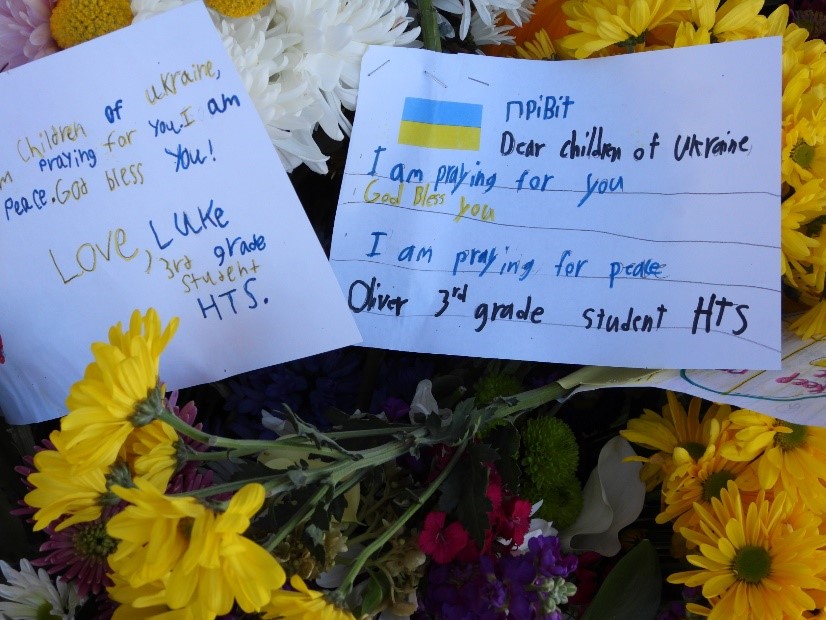 Children of Ukraine,
praying for you. I am
peace. God bless you!
Love, Luke
3rd grade
student
HTS.
ПРіВіт
Dear children of Ukraine
I am praying for you
God Bless you
I am praying for peace
Oliver 3rd grade student HTS